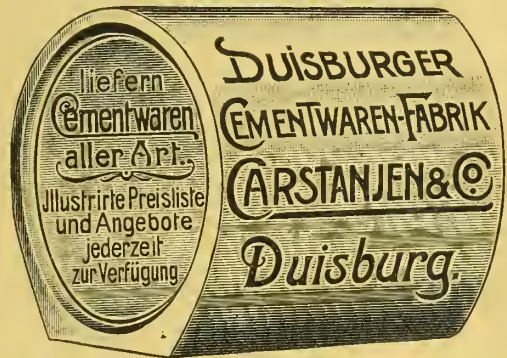 liefern
Cementwaren
aller Art.
Jllustrirte Preisliste
und Angebote
jederzeit
zur Verfügung
DUISBURGER
CEMENTWAREN-FABRIK
CARSTANJEN & Co.
Duisburg.